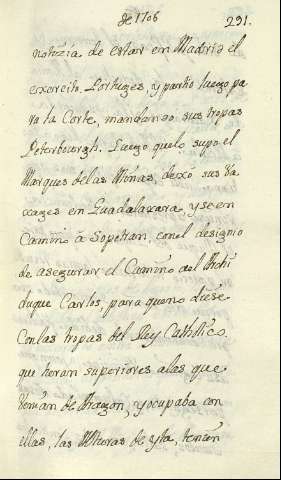 de 1706
291.
notizia de estar en Madrid el
exercito Portuges, y partio luego pa
ra la Corte, mandando sus tropas
Peterbourgh. Luego quelo supo el
Marques delas Minas, dexo sus Va
xages en Guadalaxara, y se en
Camin̄ â Sopetran, conel designio
de asegurar el Camin̄ del Archi
duque Carlos, para queno diese
Con las tropas del Rey Catholico.
que heran superiores alas que
Venian de Aragon, y ocupaba con
ellas, las de yta, tenien